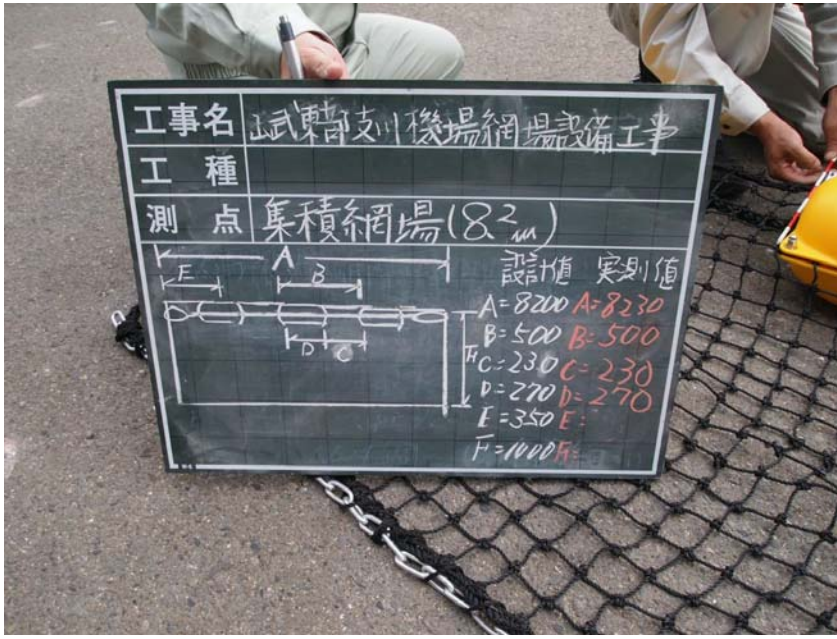 工事名 武東部技川機場網場設備工事
工種
測点 集積網場(8.2m)
A
E B
D C
F
設計値 実測値
A=8200 A=8230
B=500 B=500
C=230 C=230
D=270 D=270
E=350 E=
F=1000 F=